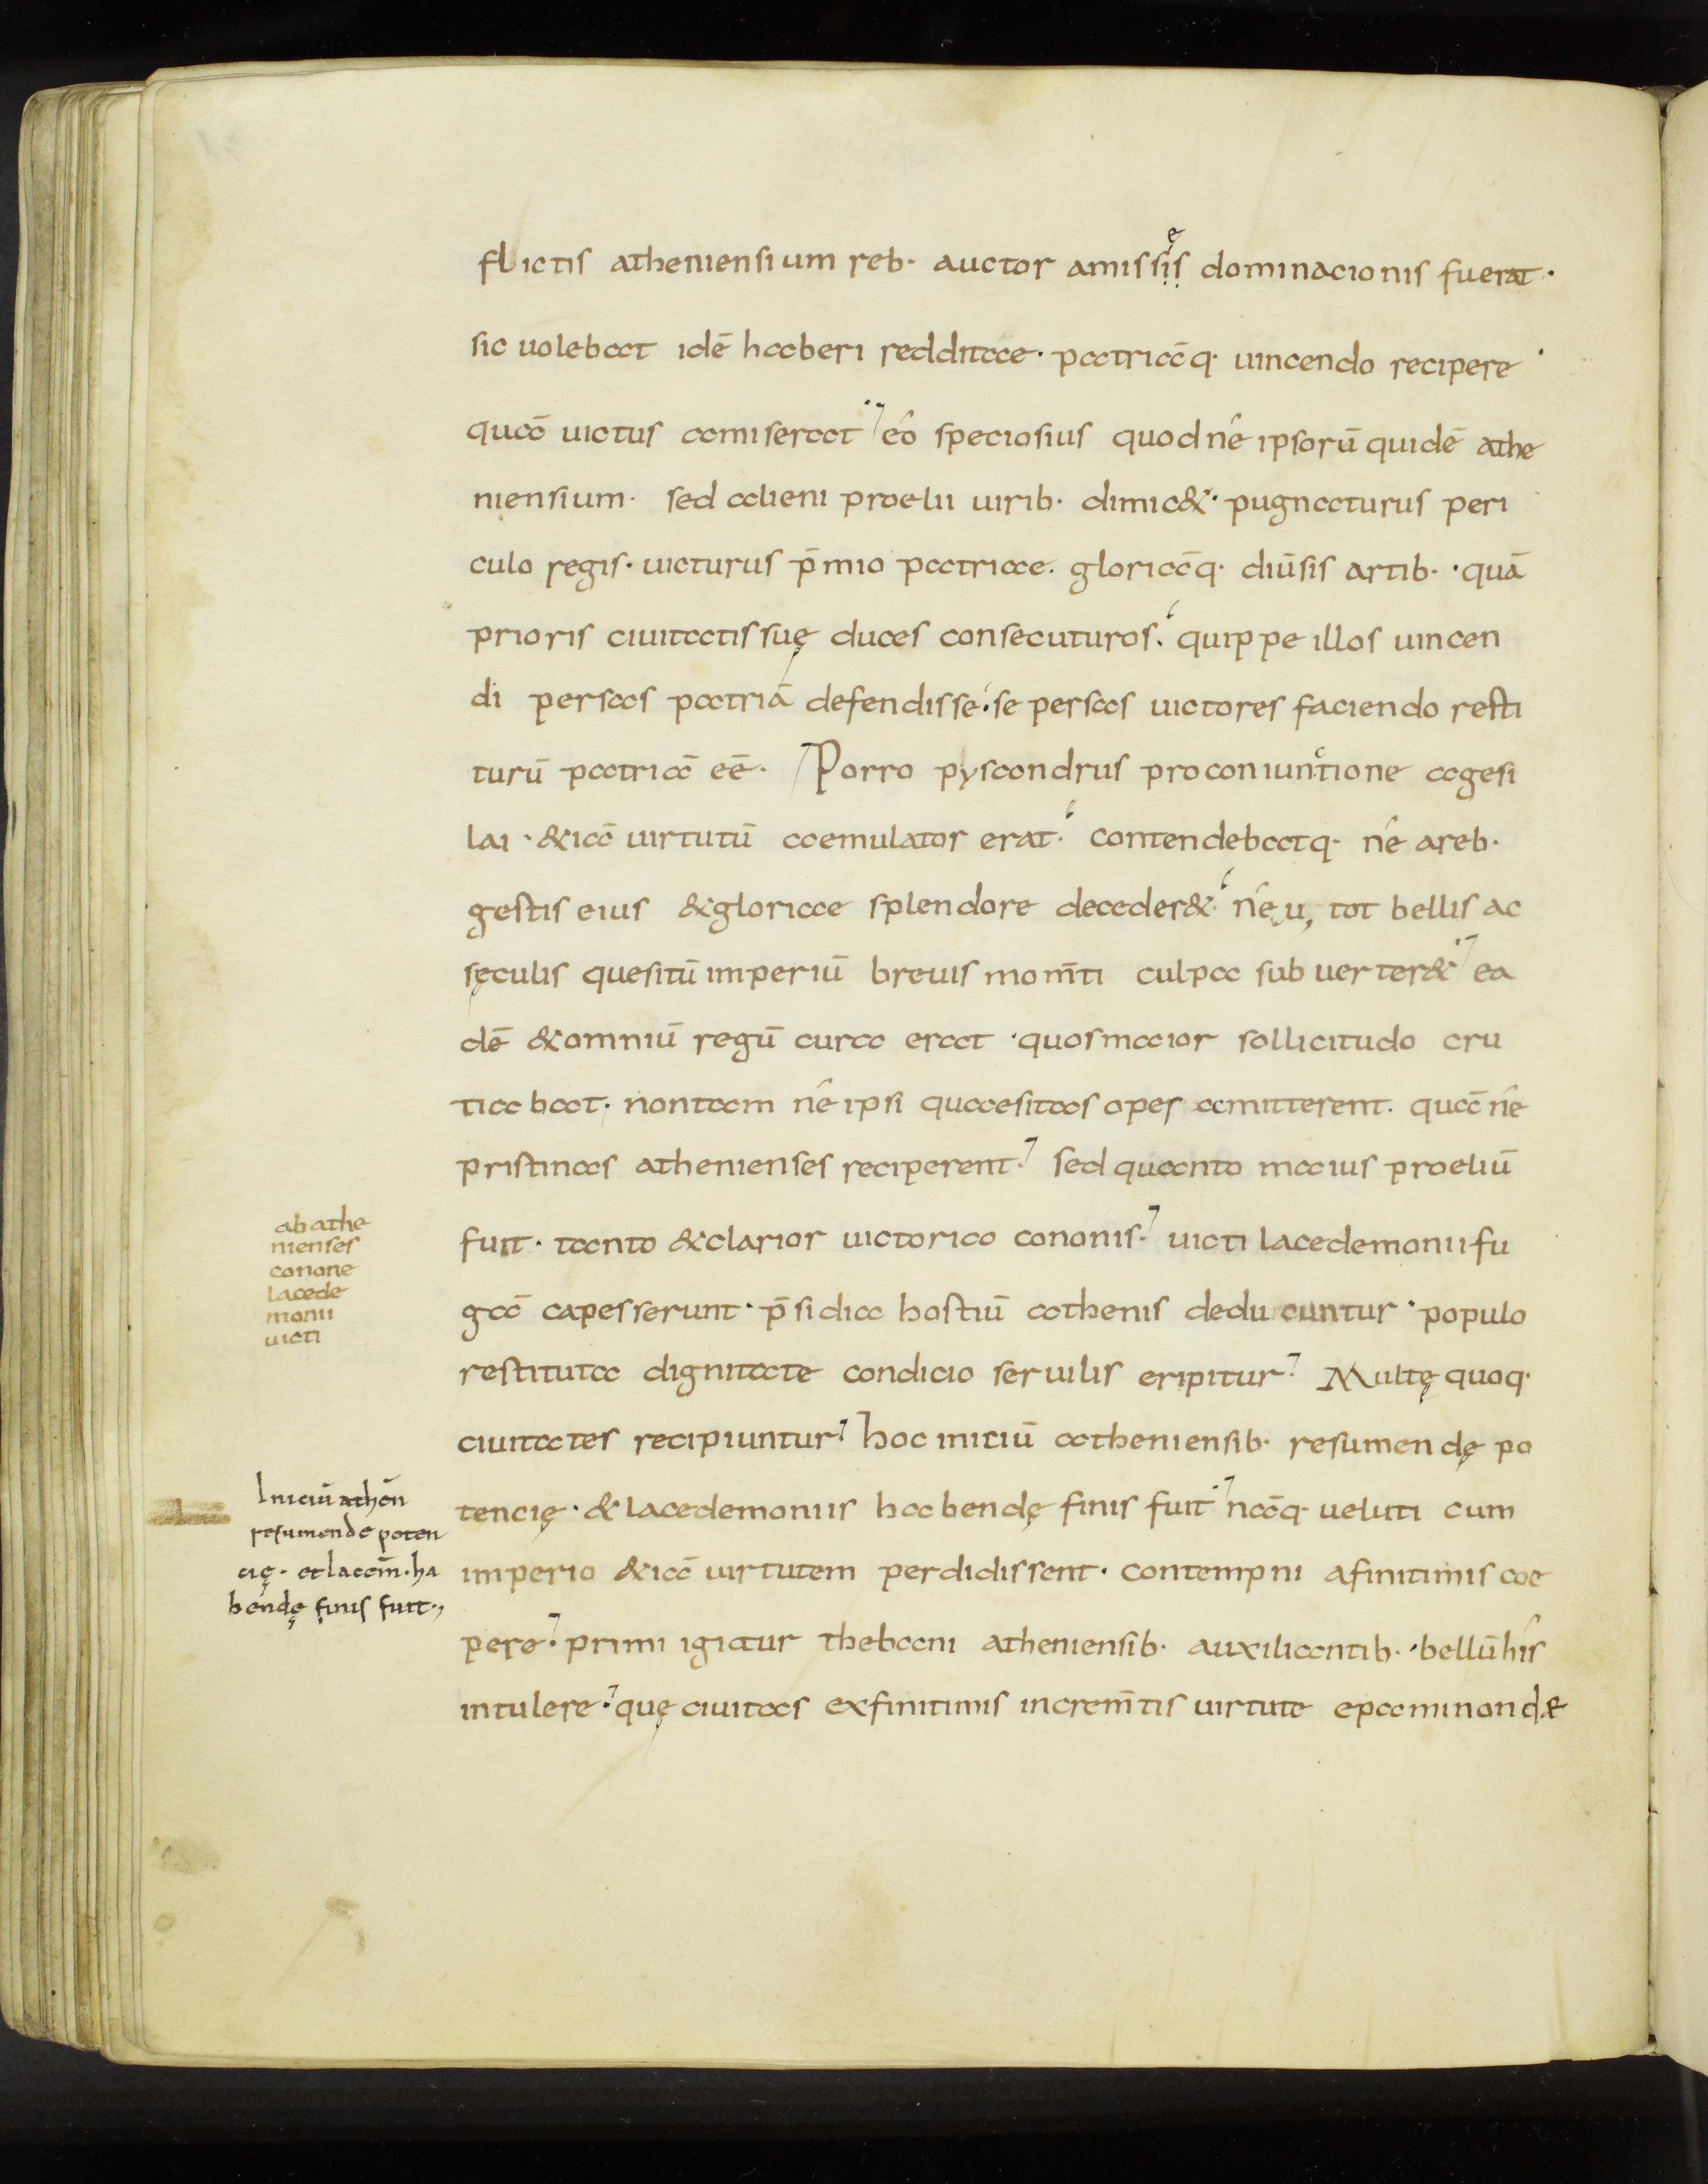 flictis atheniensium reb· auctor amissis̨ę dominacionis fuerat·
sic uolebat idē haberi redditae· patriāq· uincendo recipere·
quā uictus amiserat eo speciosius quod ne ipsorū quidē athe
niensium· sed alieni proelii uirib· dimic&· pugnaturus peri
culo regis· uicturus p̄mio patriae· gloriāq· diūsis artib·· quā
prioris ciuitatis suę duces consecuturos· quippe illos uincen
di persas patriā defendisse· se persas uictores faciendo resti
turū patriā eē· Porro pyscandrus pro coniunctione agesi
lai· &iā uirtutū aemulator erat· contendebatq· ne a reb·
gestis eius & gloriae splendore deceder&· neu, tot bellis ac
sęculis quesitū imperiū breuis mom̄ti culpa subuerter& ea
dē & omniū regū cura erat· quos maior sollicitudo cru
tiabat· non tam ne ipsi quaesitas opes amitterent· quā ne
pristinas athenienses reciperent· sed quanto maius proeliū
fuit· tanto & clarior uictoria cononis· uicti lacedemonii fu
gā capesserunt· p̄sidia hostiū athenis deducuntur· populo
restituta dignitate condicio seruilis eripitur· Multę quoq·
ciuitates recipiuntur· hoc iniciū atheniensib· resumendę po
tencię· & lacedemoniis habendę finis fuit· nāq· ueluti cum
imperio &iā uirtutem perdidissent· contempni a finitimis coe
pere· primi igitur thebani atheniensib· auxiliantib·· bellū his
intulere· quę ciuitas ex finitimis increm̄tis uirtute epaminondę
ab athe
nienses
conone
lacede
monii
uicti
Iniciū athēn
resumende poten
cię· et lacēm· ha
bendę finis fuit·,